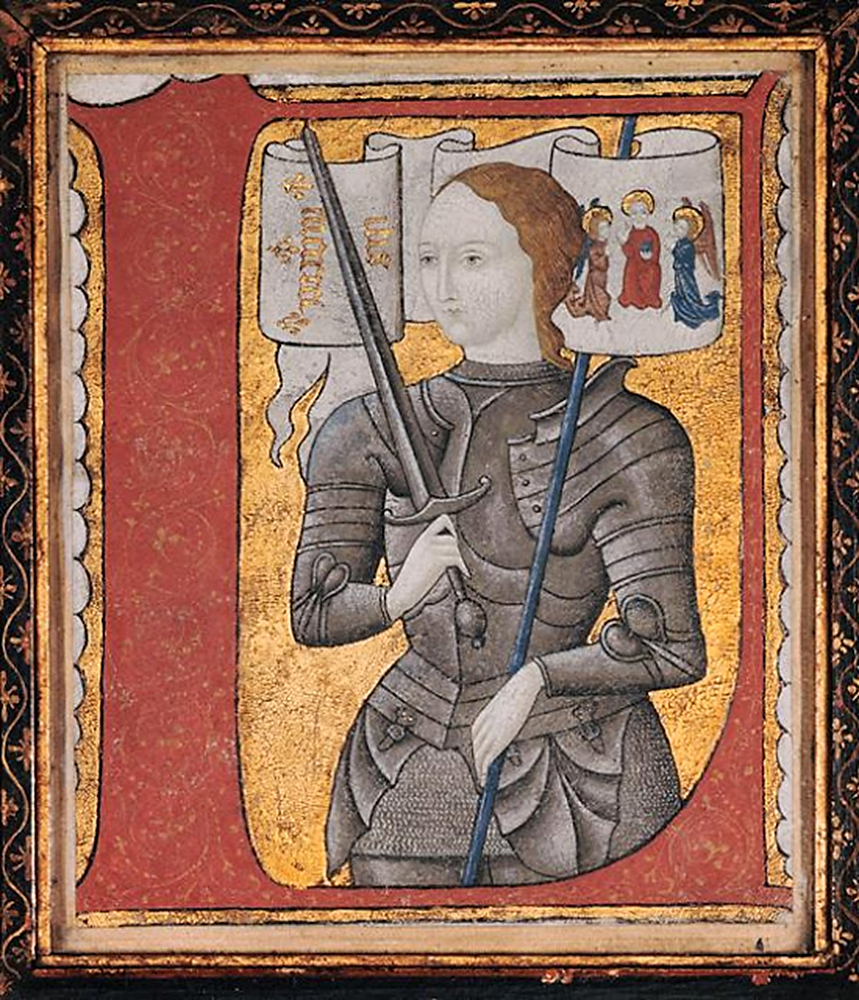 ihs
maria